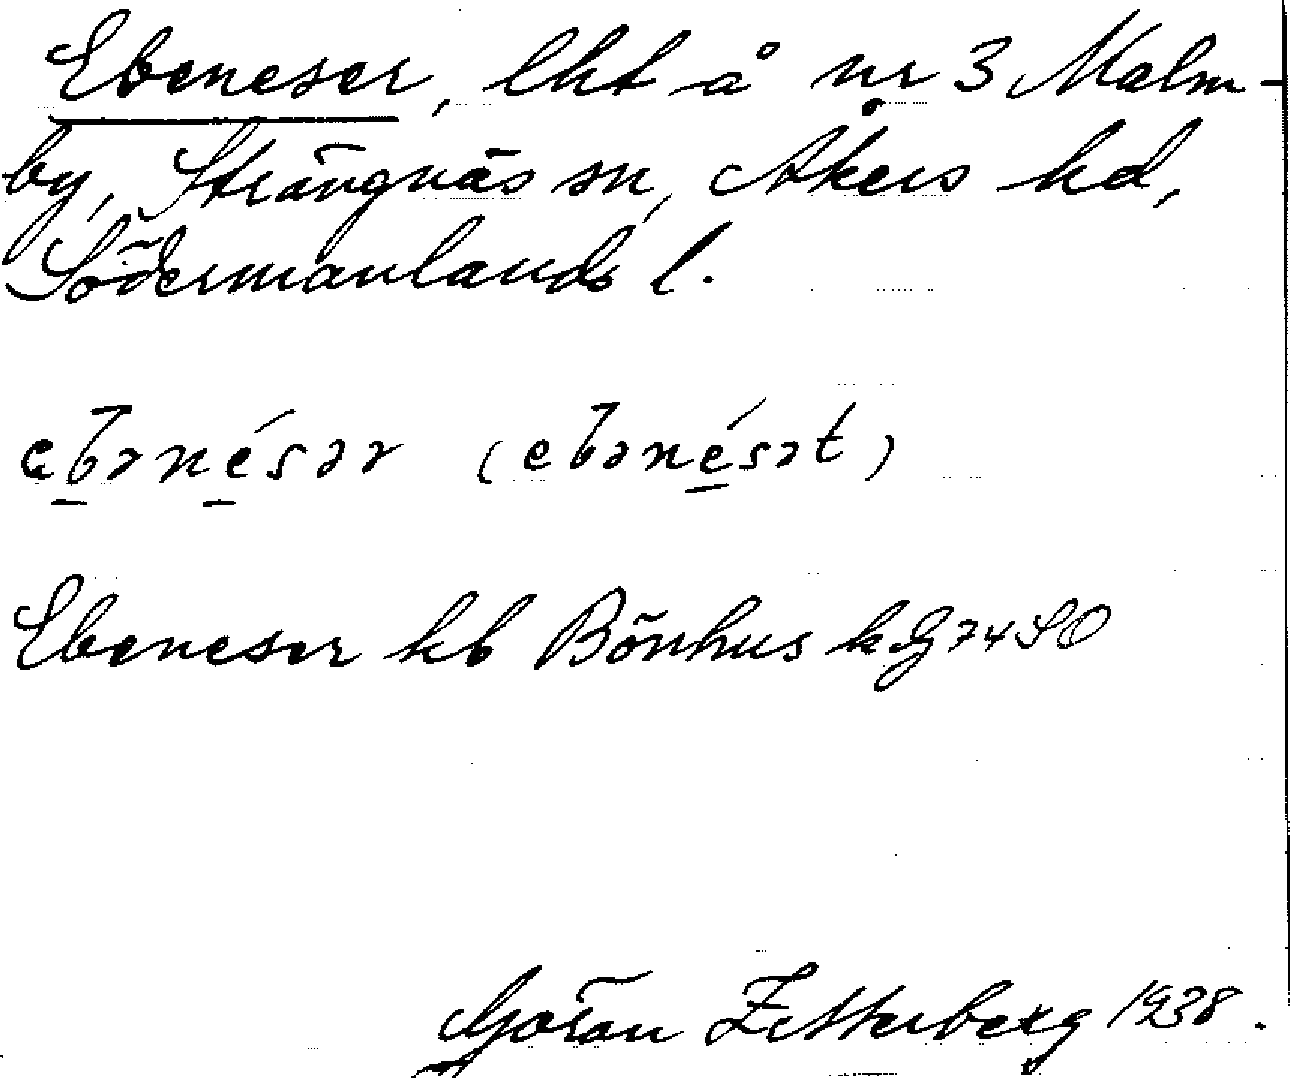 Ebeneser, lht å nr 3 Malm-
by, Strängnäs sn, Åkers hd,
Södermanlands l.
ebənésər (ebənésət)
Ebeneser kb Bönhus k G 74 SO
Göran Zetterberg 1938.